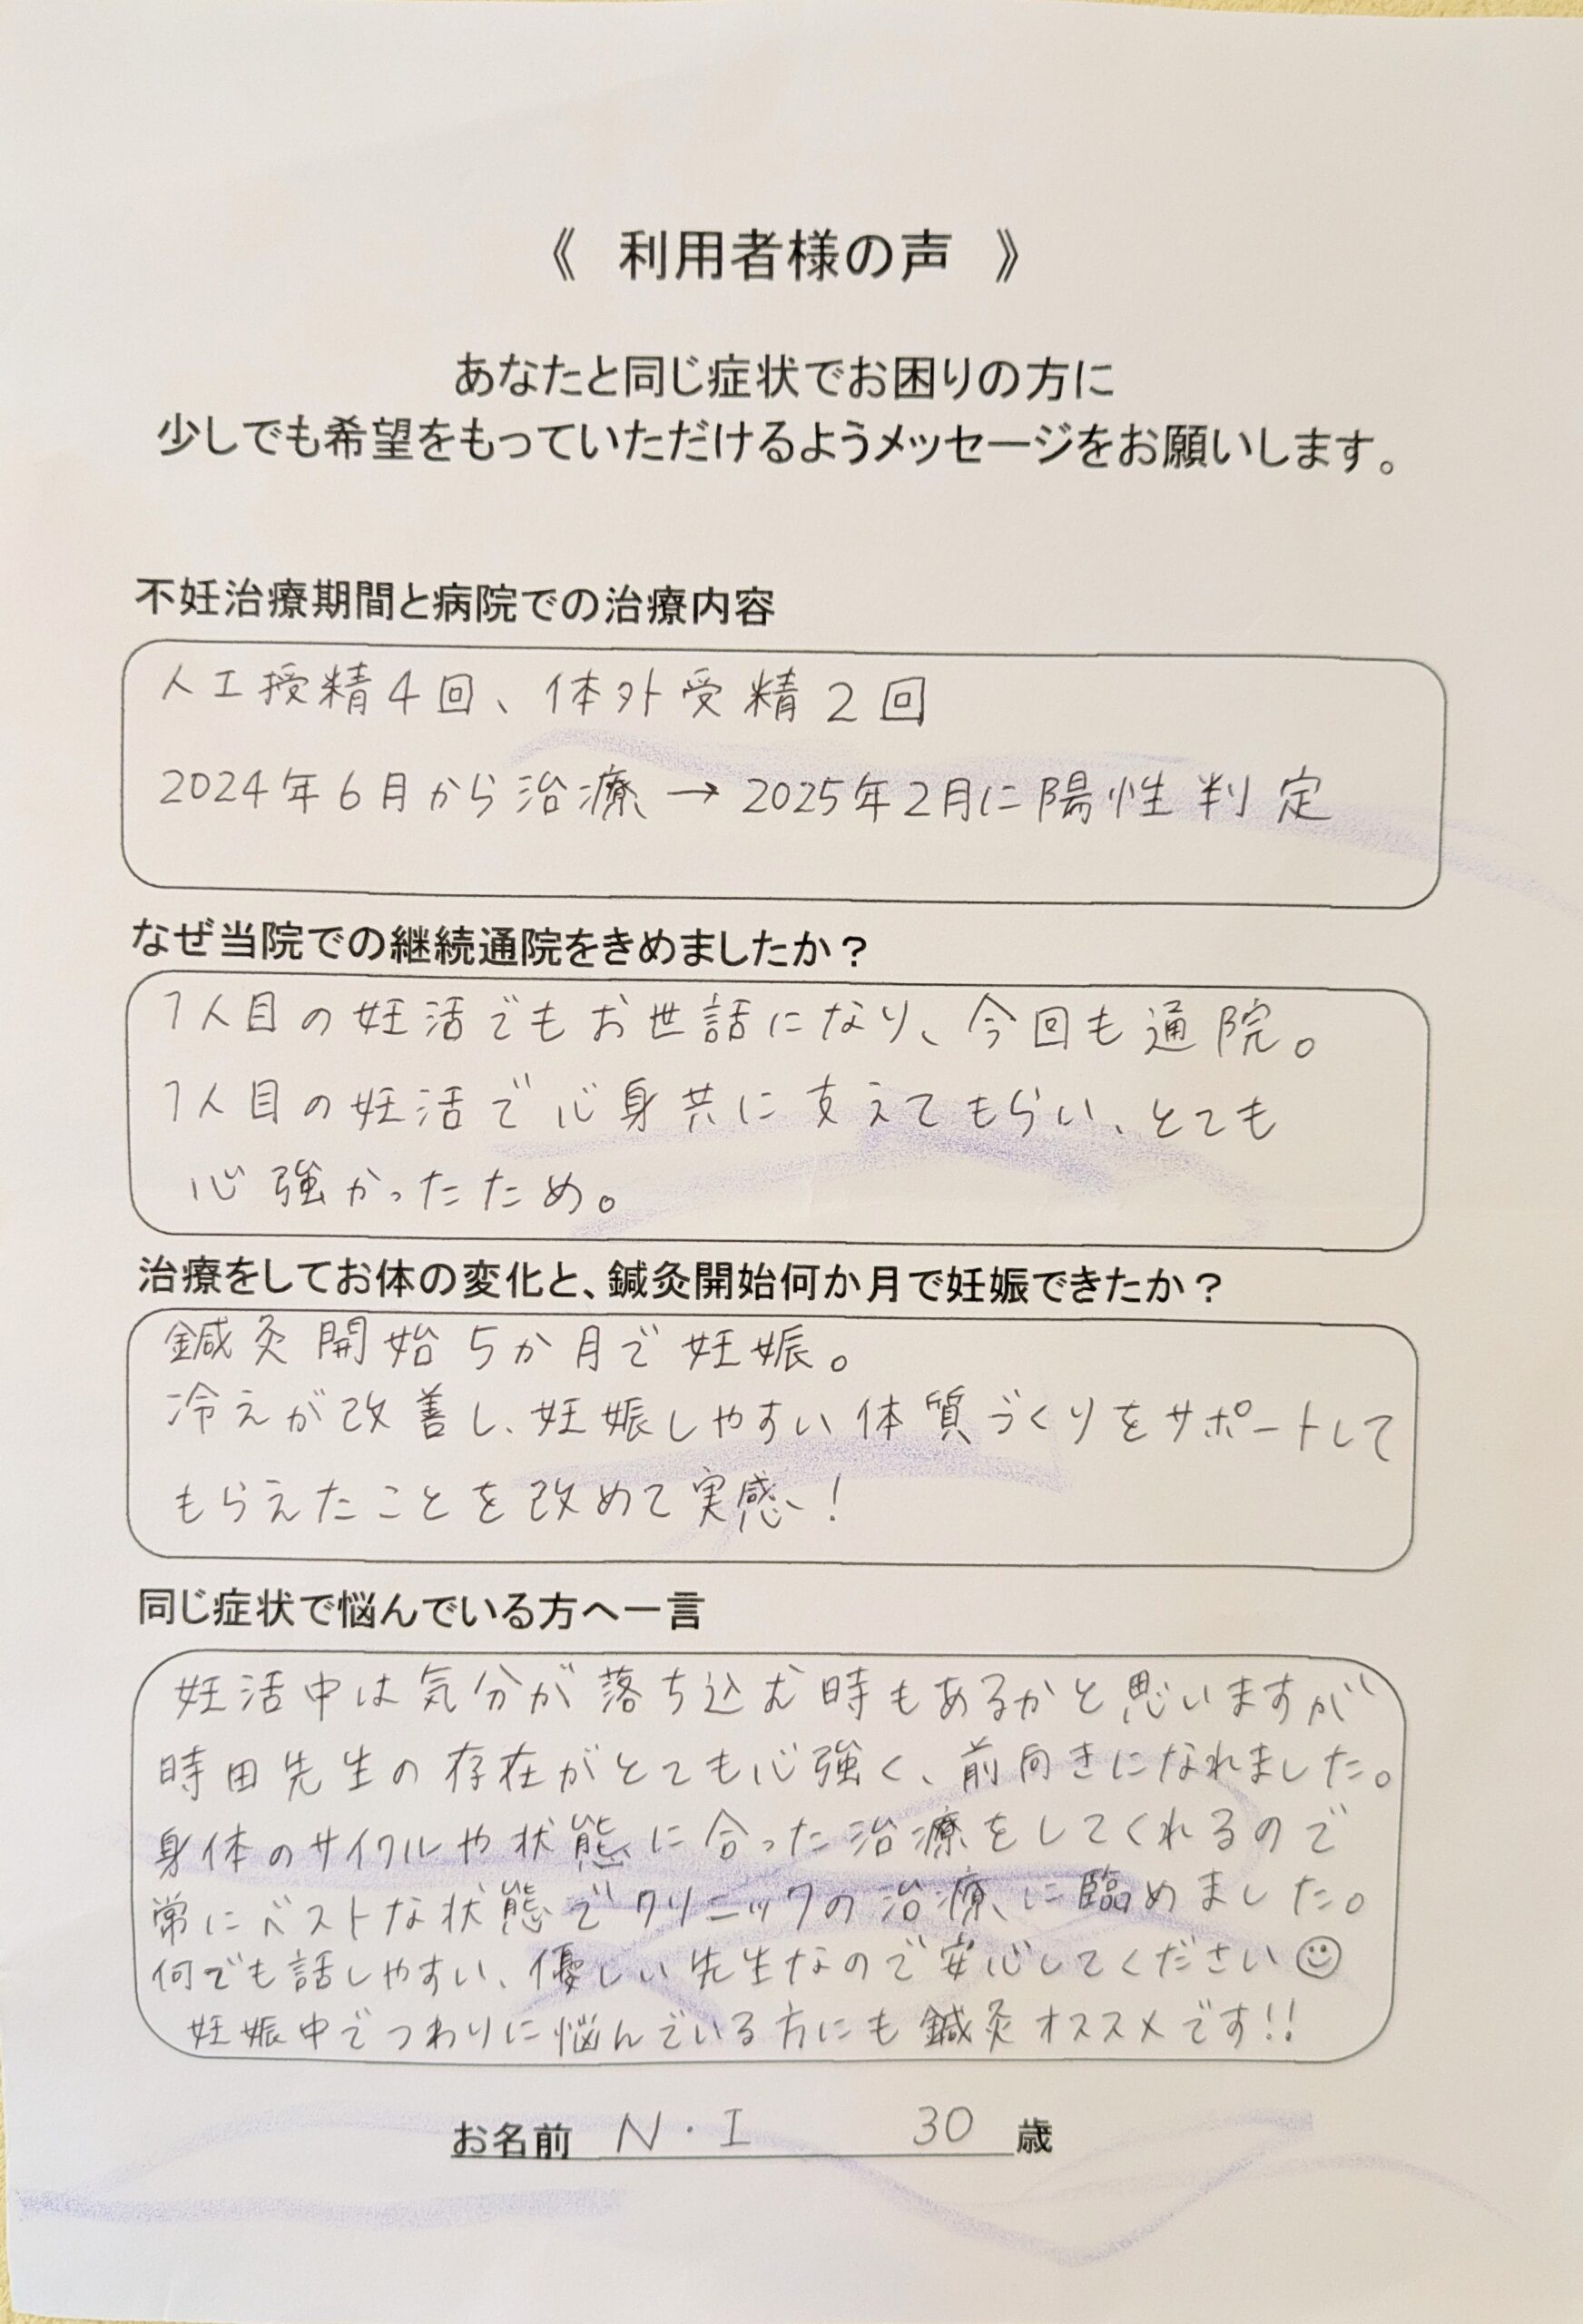 《 利用者様の声 》
あなたと同じ症状でお困りの方に
少しでも希望をもっていただけるようメッセージをお願いします。
不妊治療期間と病院での治療内容
人工授精4回、体外受精2回
2024年6月から治療→2025年2月に陽性判定
なぜ当院での継続通院をきめましたか？
1人目の妊活でもお世話になり、今回も通院。
1人目の妊活で心身共に支えてもらい、とても
心強かったため。
治療をしてお体の変化と、鍼灸開始何か月で妊娠できたか？
鍼灸開始5か月で妊娠。
冷えが改善し、妊娠しやすい体質づくりをサポートして
もらえたことを改めて実感！
同じ症状で悩んでいる方へ一言
妊活中は気分が落ち込む時もあるかと思いますが
時田先生の存在がとても心強く、前向きになれました。
身体のサイクルや状態に合った治療をしてくれるので
常にベストな状態でクリニックの治療に臨めました。
何でも話しやすい、優しい先生なので安心してください☺
妊娠中でつわりに悩んでいる方にも鍼灸オススメです!!
お名前 N・I 30 歳